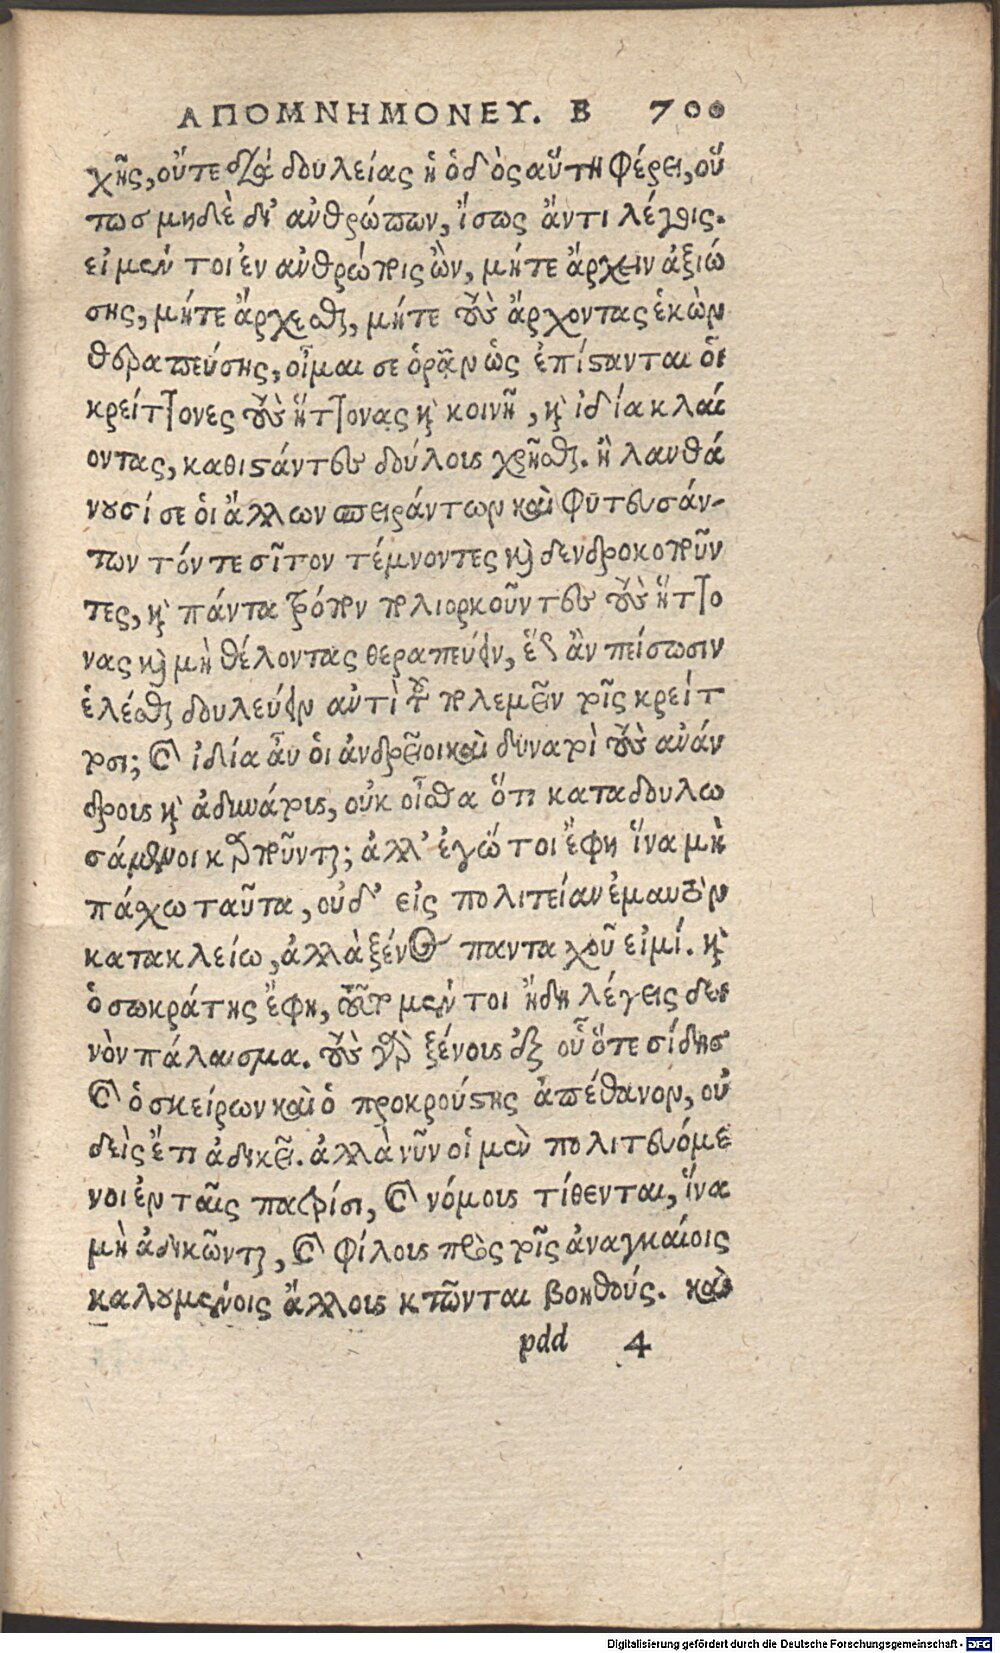 ΑΠΟΜΝΗΜΟΝΕΥ. Β 700
χῆς, οὔτε διὰ δουλείας ἡ ὁδὸς αὕτη φέρει, οὕ
τωσ μηδὲ δι' ἀνθρώπων, ἴσως ἄν τι λέγοις.
εἰ μέν τοι ἐν ἀνθρώποις ὢν, μήτε ἄρχειν ἀξιώ
σῃς, μήτε ἄρχεσθαι, μήτε τοὺς ἄρχοντας ἑκὼν
θεραπεύσῃς, οἶμαι σε ὁρᾷν ὡς ἐπίστανται οἷ
κρείττονες τοὺς ἥττονας καὶ κοινῇ, καὶ ἰδία κλαί
οντας, καθιστάντες δούλοις χρῆσθαι. ἢ λανθά
νουσί σε οἱ ἄλλων σπειράντων καὶ φυτευσάν-
των τόν τε σῖτον τέμνοντες καὶ δενδροκοποῦν
τες, καὶ πάντα τρόπον πολιορκοῦντες τοὺς ἥττο
νας καὶ μὴ θέλοντας θεραπεύειν, ἕως ἂν πείσωσιν
ἑλέσθαι δουλεύειν αὐτὶ τοῦ πολεμεῖν τοῖς κρείτ
τοσι; καὶ ἰδία αὖ οἱ ἀνδρεῖοι καὶ δυνατοὶ τοὺς ἀνάν
δρους καὶ ἀδυνάτους, οὐκ οἶσθα ὅτι καταδουλω
σάμενοι καρποῦνται; ἀλλ' ἐγώ τοι ἔφη ἵνα μὴ
πάχω ταῦτα, οὐδ' εἰς πολιτείαν ἐμαυτὸν
κατακλείω, ἀλλὰ ξένος πανταχοῦ εἰμί. καὶ
ὁ σωκράτης ἔφη, τοῦτο μέν τοι ἤδη λέγεις δει
νὸν πάλαισμα. τοὺς γὰρ ξένους ἐξ οὗ ὅτε σίδησ
καὶ ὁ σκείρων καὶ ὁ προκρούστης ἀπέθανον, οὐ
δεὶς ἔτι ἀδικεῖ. ἀλλὰ νῦν οἱ μὲν πολιτευόμε
νοι ἐν ταῖς πατρίσι, καὶ νόμους τίθενται, ἵνα
μὴ ἀδικῶνται, καὶ φίλους πρὸς τοῖς ἀναγκαίοις
καλουμένοις ἄλλους κτῶνται βοηθούς. καὶ
pdd 4
Digitalisierung gefördert durch die Deutsche Forschungsgemeinschaft - DFG